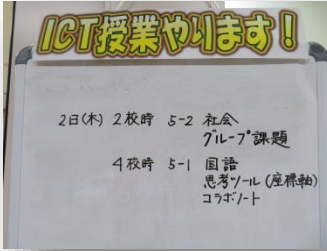 ICT授業やります！
2日(木) 2校時 5-2 社会
グループ課題
4校時 5-1 国語
思考ツール(座標軸)
コラボノート